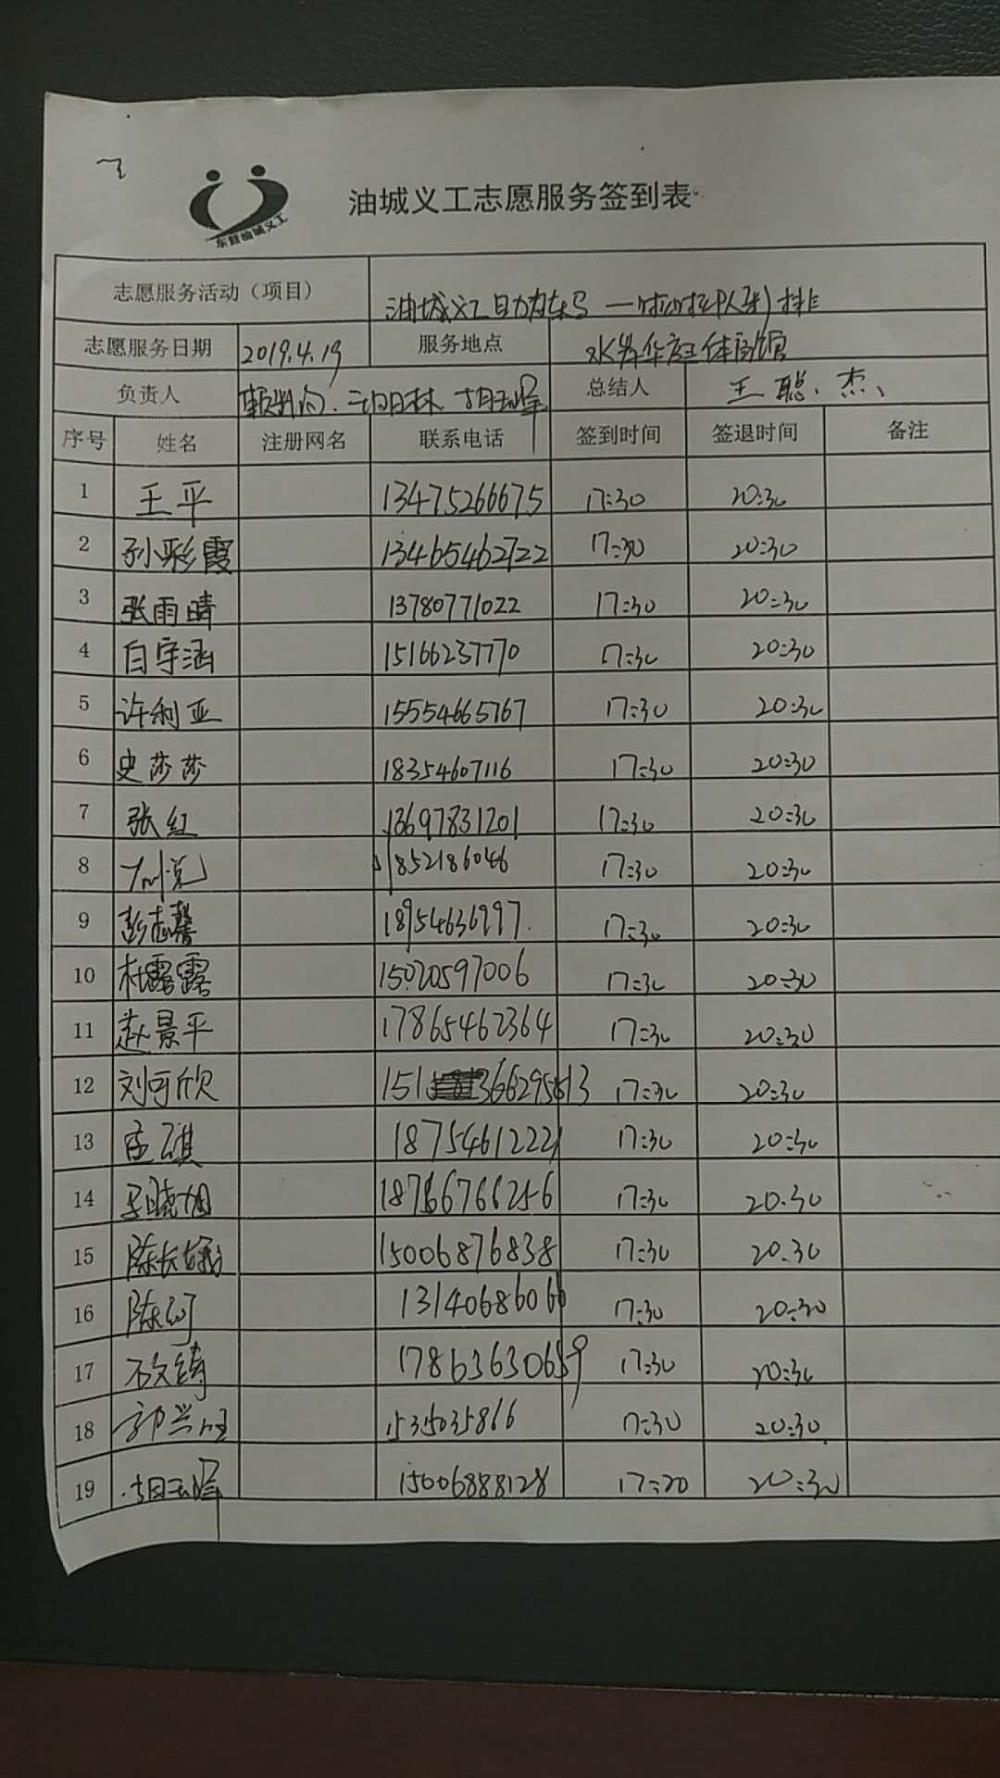 东营油城义工
油城义工志愿服务签到表
志愿服务活动（项目） 油城义工
志愿服务日期 2019.4.19 服务地点 水岸华庭体育馆
负责人 总结人 王聪、杰、
序号 姓名 注册网名 联系电话 签到时间 签退时间 备注
1 王平 13475266675 17:30 20:30
2 孙彩霞 13465462722 17:30 20:30
3 张雨晴 13780771022 17:30 20:30
4 白宇涵 15166237770 17:30 20:30
5 许利亚 15554665767 17:30 20:30
6 史莎莎 18354607116 17:30 20:30
7 张红 13697831201 17:30 20:30
8 17:30 20:30
9 彭志馨 18954636997 17:30 20:30
10 杜露露 15020597006 17:30 20:30
11 赵景平 17865462364 17:30 20:30
12 刘可欣 17:30 20:30
13 孟琪 18754612221 17:30 20:30
14 18766766256 17:30 20:30
15 15006876838 17:30 20:30
16 13140686066 17:30 20:30
17 17863630659 17:30 20:30
18 17:30 20:30
19 胡玉峰 15006888128 17:20 20:30